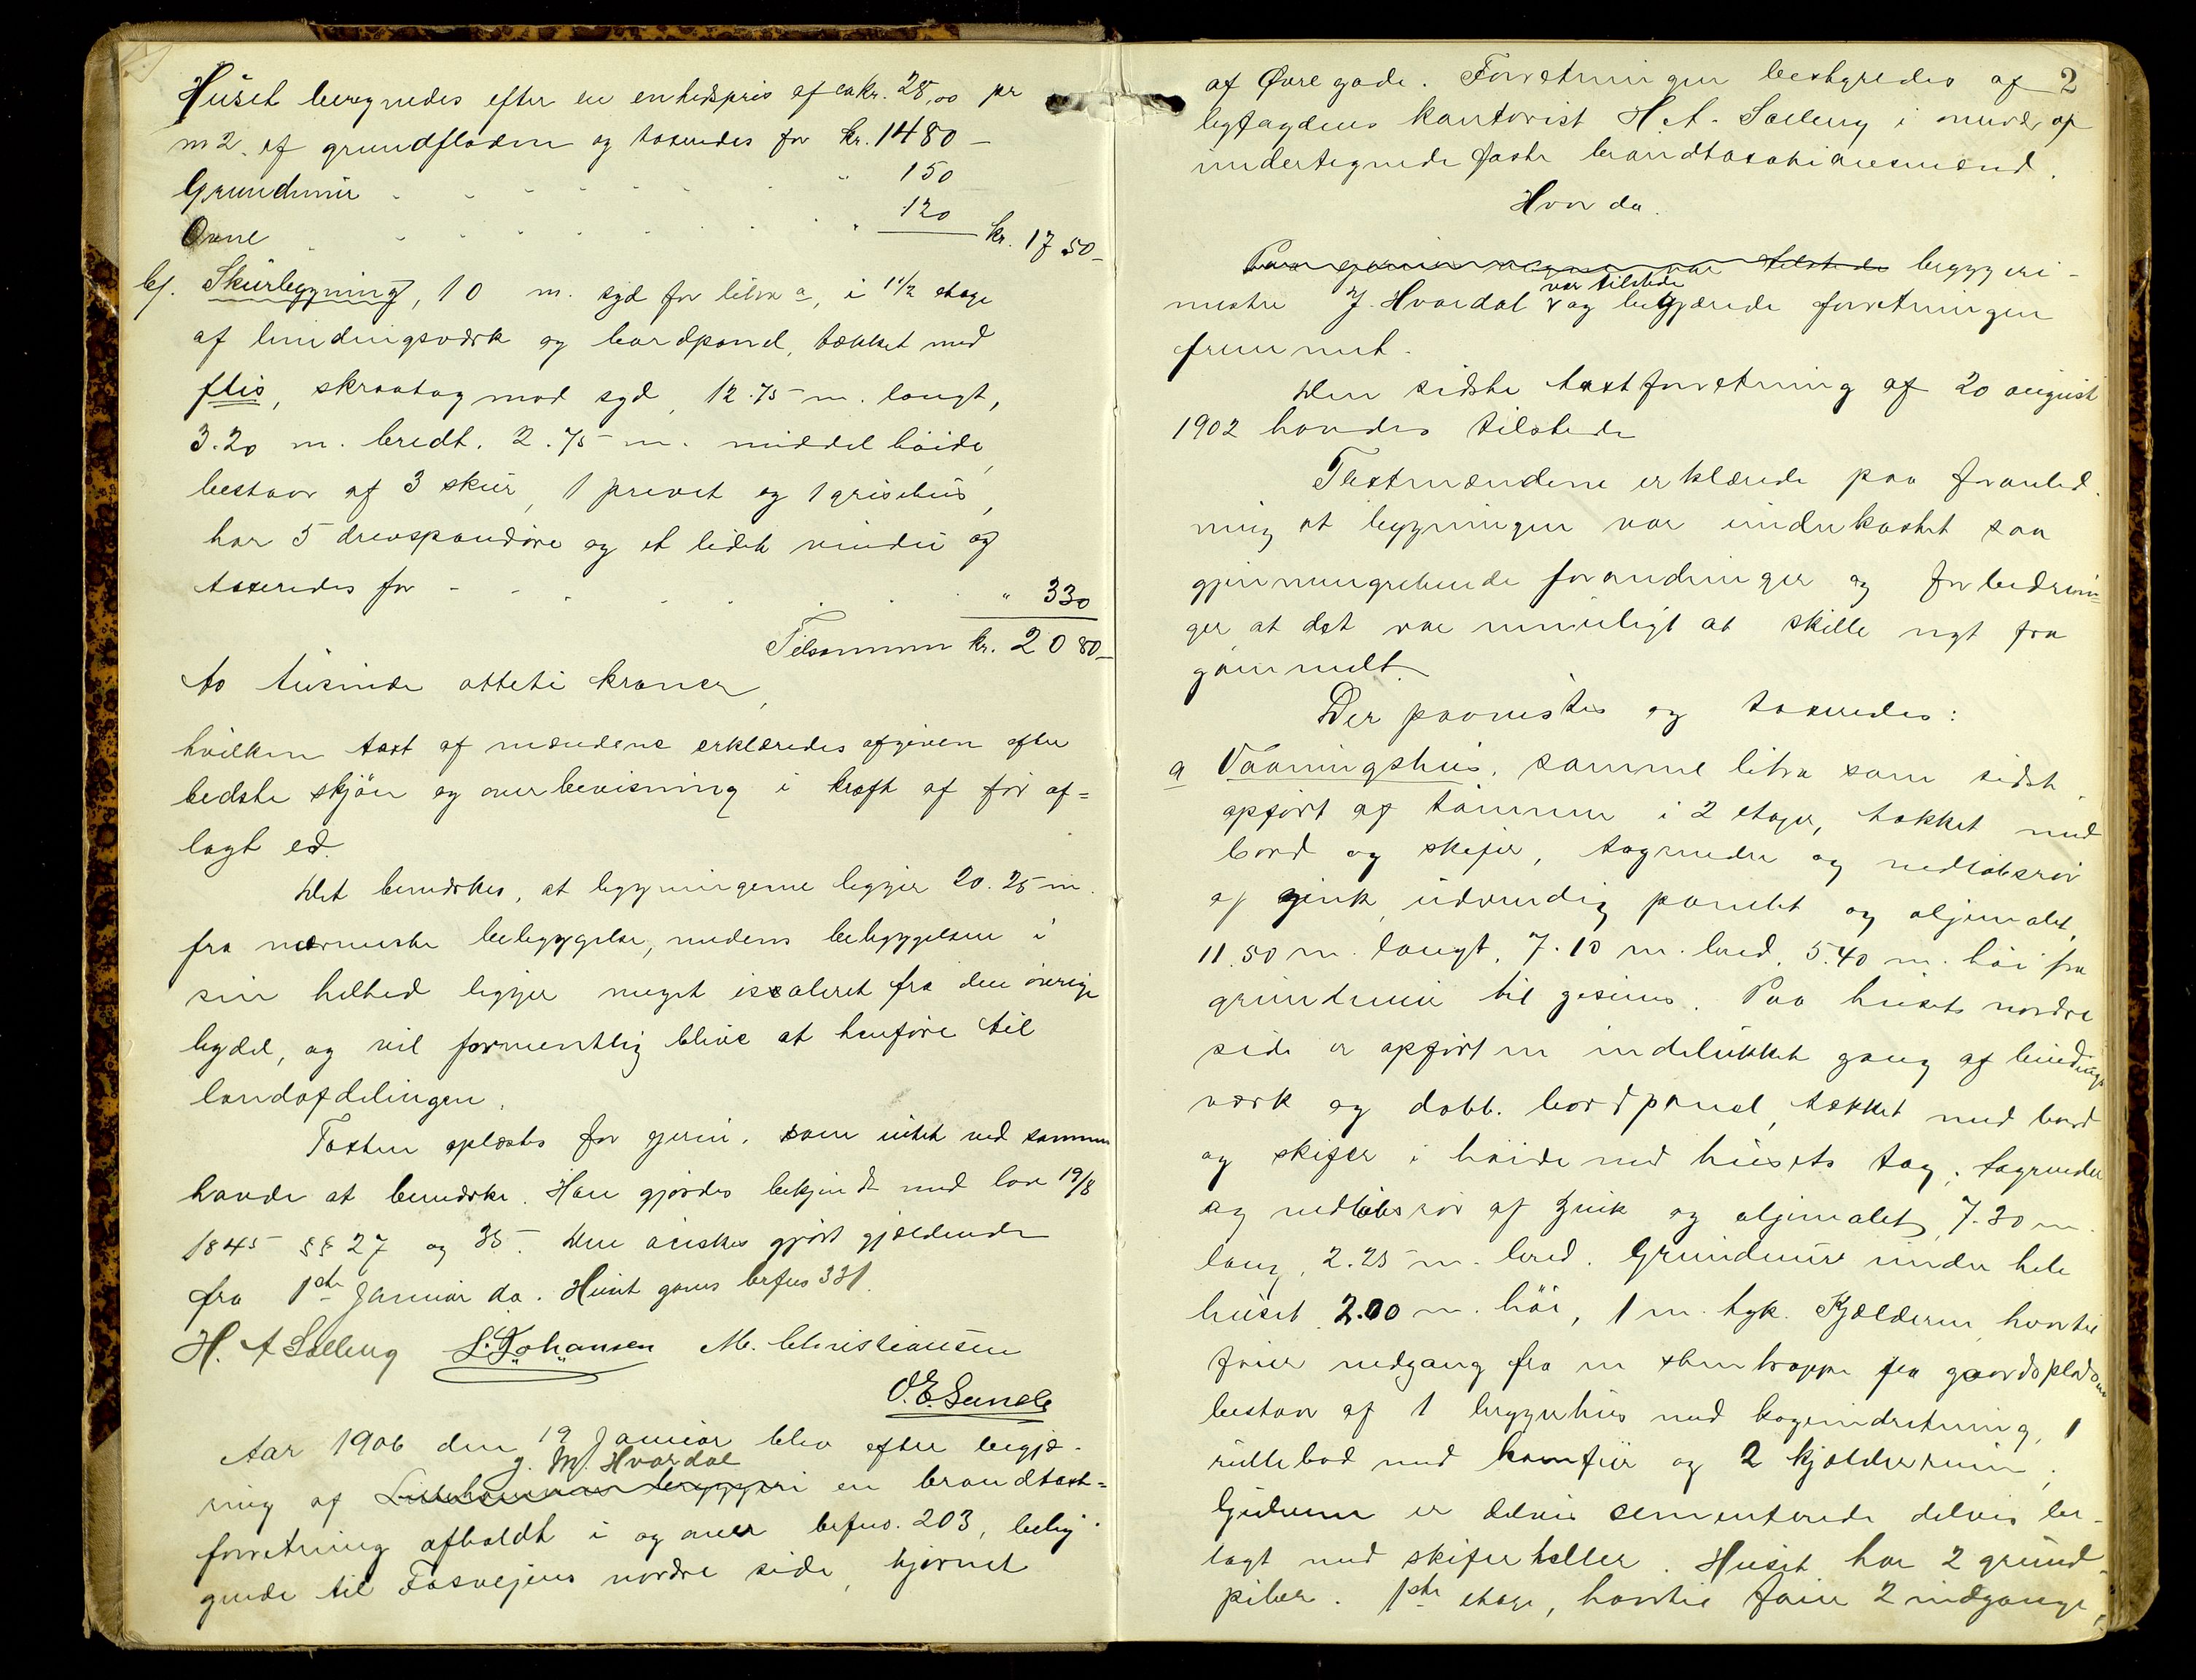 Huset beregnedes efter en enhedspris af ca kr. 28,00 pr
m2. af grundfladen og taxeredes for kr. 1480 -
Grundmur " 150
Ovne " 120 kr. 1750 -
b). Skurbygning, 10 m. syd for litra a, i 1 1/2 etage
af bindingsværk og bordpanel, tækket med
flis, skraatag mod syd, 12.75 m. langt,
3.20 m. bredt. 2.75 m. middel höide,
bestaar af 3 skur, 1 privet og 1 grisehus,
har 5 drevspandöre og et lidet vindu og
taxeredes for " 330
Tilsammen kr. 2080 -
to tusinde otteti kroner,
hvilken taxt af mændene erklæredes afgiven efter
bedste skjön og overbevisning i kraft af för af=
lagt ed.
Det bemærkes, at bygningerne ligger 20.25 m.
fra nærmeste bebyggelse, medens bebyggelsen i
sin helhed ligger meget issoleret fra den överige
bydel, og vil formentlig blive at henföre til
landafdelingen.
Taxten oplæstes for gerin. som intet ved samme
havde at bemærke. Han gjordes bekjendt med lov 19/8
1845 §§ 27 og 35. Den önskes gjört gjældende
fra 1ste Januar da. Huset gives brfno 331.
H. A Sælleng L. Johansen M. Christiansen
O. E. Sunde
Aar 1906 den 19 Januar blev efter begjæ-
J. M. Hvardal
ring af Lillehammer bryggeri en brandtaxt=
forretning afholdt i og over brfno. 203, belig-
gende til Fosvejens nordre side, hjörnet
2
af Övre gade. Forretningen bestyredes af
bygfogdens kontorist H. A. Sælleng i nærvær af
undertegnede faste brandtaxationsmænd.
Hvor da.
Paa gerin vegne var tilstede bryggeri-
var tilstede
mester J. Hvardal v og begjærede forretningen
fremmet.
Den sidste taxtforretning af 20 august
1902 havdes tilstede
Taxtmændene erklærede paa foranled-
ning at bygningen var underkastet saa
gjennemgribende forandringer og forbedrin=
ger at det var umuligt at skille nyt fra
gammelt.
Der paavistes og taxeredes:
a Vaaningshus, samme litra som sidst,
opfört af tömmer i 2 etager, tækket med
bord og skifer, tagrender og nedlöbsrör
af zink, udvendig panelet og oljemalet,
11.50 m. langt, 7.10 m. bred, 5.40 m. höi fra
grundmur til gesims. Paa husets nordre
side er opfört en indelukket gang af bindings
værk og dobb. bordpanel, tækket med bord
og skifer i höide med husets tag, tagrender
og nedlöbsrör af zink og oljemalet, 7.30 m.
lang, 2.25 m. bred. Grundmur under hele
huset 2.00 m. höi, 1 m. tyk. Kjælderen hvortil
förer nedgang fra en stentrappe fra gaardspladsen
bestaar af 1 bryggerhus med kogeindretning, 1
rullebod med komfur og 2 kjælderrum,
er delvis sementerede delvis be-
lagt med skiferheller. Huset har 2 grund-
piber. 1ste etage, hvortil förer 2 indgange,